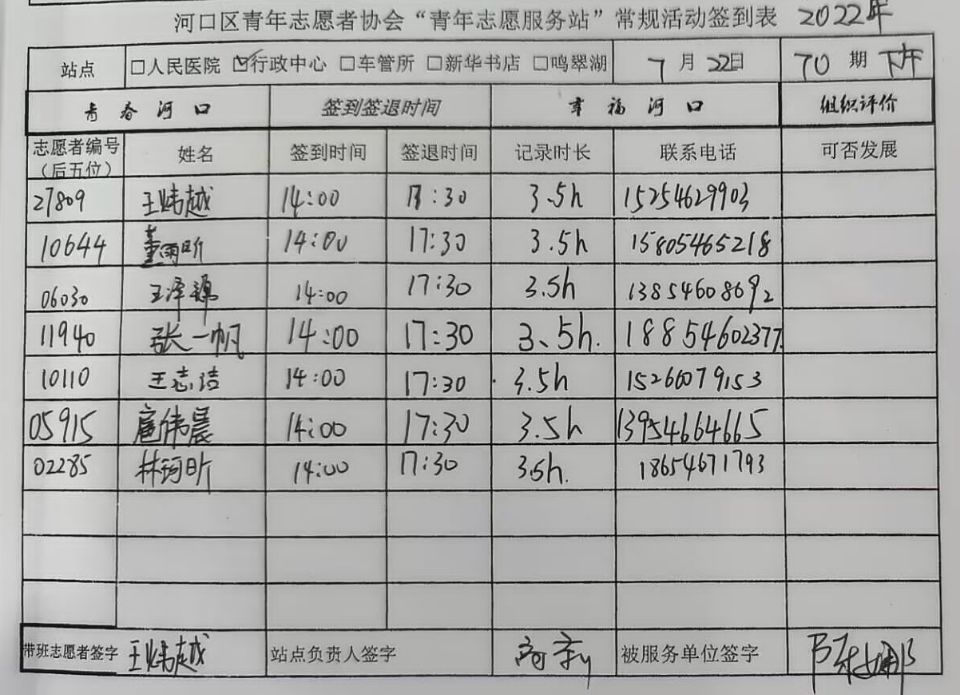 河口区青年志愿者协会“青年志愿服务站”常规活动签到表 2022年
站点 □人民医院 ☑行政中心 □车管所 □新华书店 □鸣翠湖 7月22日 70期 下午
青春河口 签到签退时间 幸福河口 组织评价
志愿者编号（后五位） 姓名 签到时间 签退时间 记录时长 联系电话 可否发展
27809 王炜越 14:00 17:30 3.5h 15254629903
10644 董雨昕 14:00 17:30 3.5h 15805465218
06030 王泽 14:00 17:30 3.5h 13854608692
11940 张一帆 14:00 17:30 3.5h. 18854602377
10110 王志洁 14:00 17:30 3.5h 15266079153
05915 扈伟晨 14:00 17:30 3.5h 13954664665
02285 林珂昕 14:00 17:30 3.5h. 18654671793
带班志愿者签字 王炜越 站点负责人签字 被服务单位签字